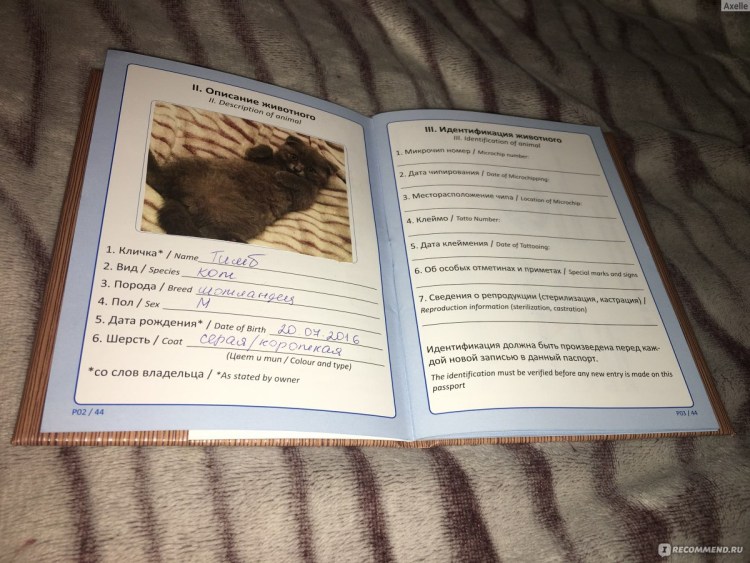 Axelle
II. Описание животного
II. Description of animal
1. Кличка* / Name Тимб
2. Вид / Species кот
3. Порода / Breed шотландец
4. Пол / Sex М
5. Дата рождения* / Date of Birth 20 04 2016
6. Шерсть / Coat серая/короткая
(Цвет и тип / Colour and type)
*со слов владельца / *As stated by owner
P02 / 44
III. Идентификация животного
III. Identification of animal
1. Микрочип номер / Microchip number:
2. Дата чипирования / Date of Microchipping:
3. Месторасположение чипа / Location of Microchip:
4. Клеймо / Tatto Number:
5. Дата клеймения / Date of Tattooing:
6. Об особых отметинах и приметах / Special marks and signs
7. Сведения о репродукции (стерилизация, кастрация) /
Reproduction information (sterilization, castration)
Идентификация должна быть произведена перед каж-
дой новой записью в данный паспорт.
The identification must be verified before any new entry is made on this
passport
P03 / 44
RECOMMEND.RU